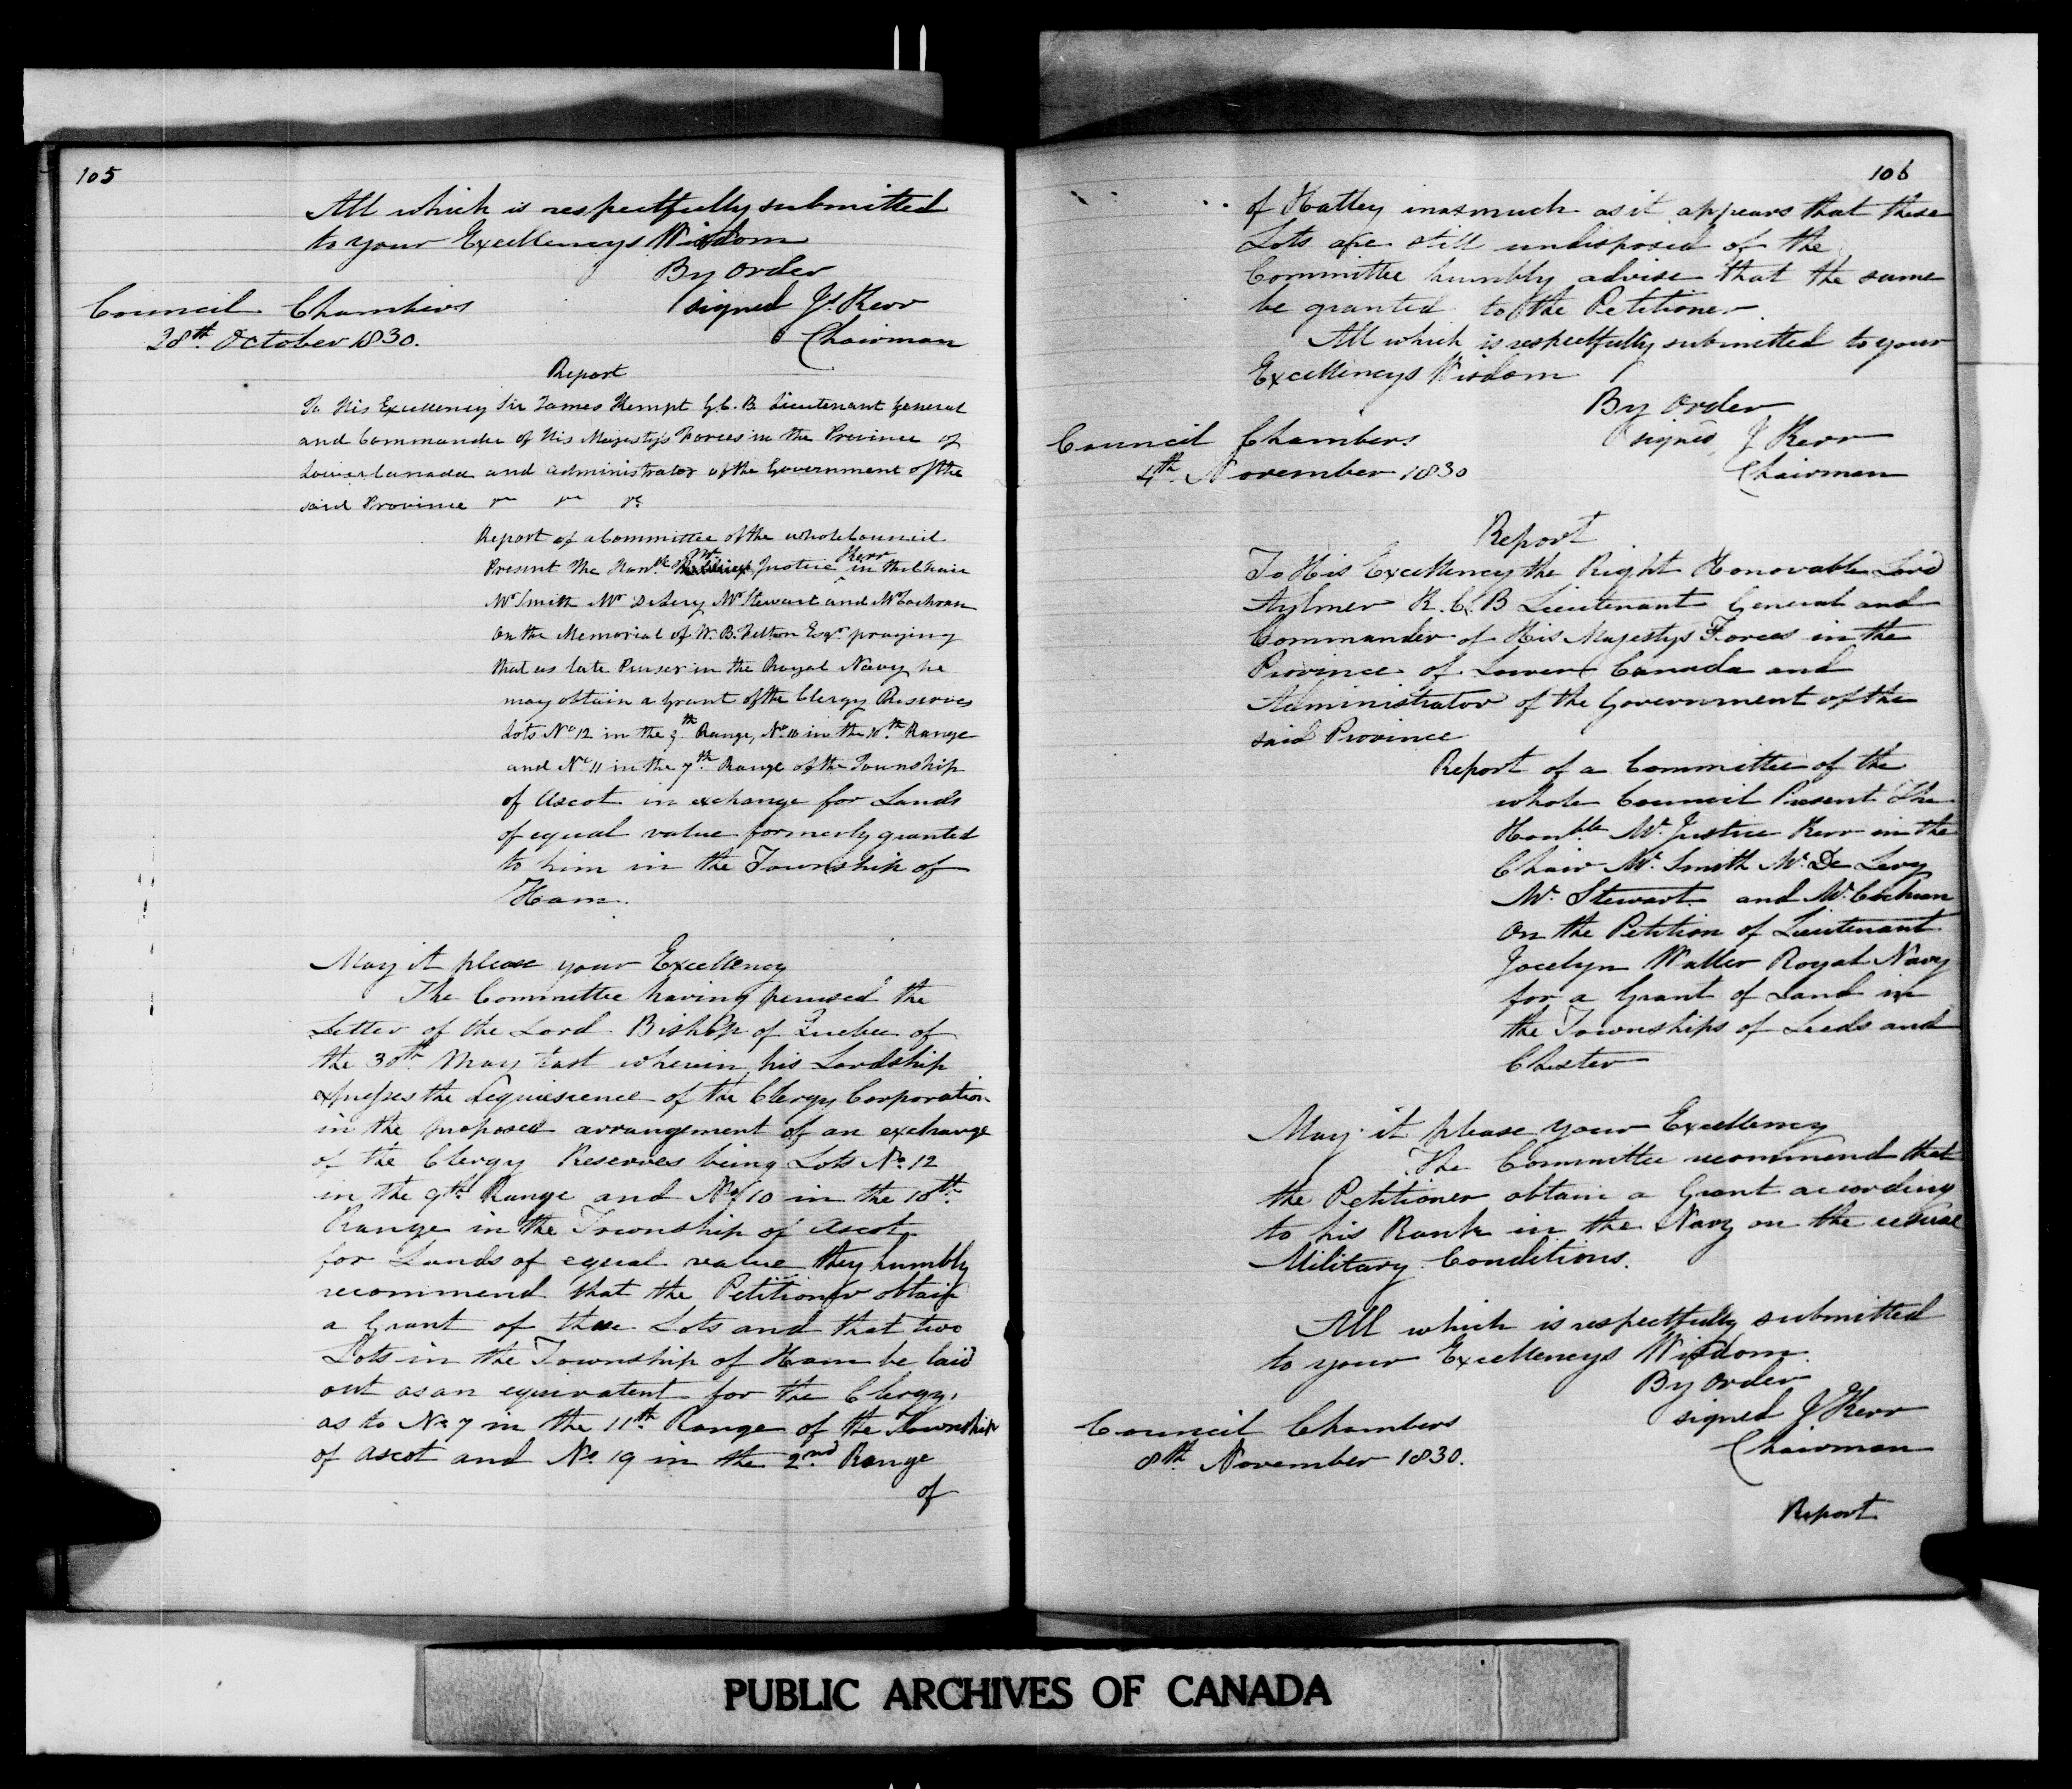 105
All which is respectfully submitted
to your Excellencys Wisdom
By order
signed Js. Kerr
Chairman
Council Chambers
28th October 1830.
Report
To His Excellency Sir James Kempt G.C.B. Lieutenant General
and Commander of His Majesty's Forces in the Province of
Lower Canada and Administrator of the Government of the
said Province &c &c &c
Report of a Committee of the whole Council
Present The Honble Mr Justice Kerr in the Chair
Mr Smith Mr DeLery Mr Stewart and Mr Cochran
On the Memorial of W. B. Felton Esqr praying
that as late Purser in the Royal Navy he
may obtain a Grant of the Clergy Reserves
Lots No 12 in the 9th Range, No 10 in the 10th Range
and No 11 in the 7th Range of the Township
of Ascot in exchange for Lands
of equal value formerly granted
to him in the Township of
Ham.
May it please your Excellency
The Committee having perused the
Letter of the Lord Bishop of Quebec of
the 30th May last wherein his Lordship
expresses the Acquiescence of the Clergy Corporation
in the proposed arrangement of an exchange
of the Clergy Reserves being Lots No 12
in the 9th Range and No 10 in the 10th
Range in the Township of Ascot
for Lands of equal value they humbly
recommend that the Petitioner obtain
a Grant of these Lots and that two
Lots in the Township of Ham be laid
out as an equivalent for the Clergy.
as to No 7 in the 11th Range of the Township
of Ascot and No. 19 in the 2nd Range
of
106
of Hatley inasmuch as it appears that these
Lots are still undisposed of the
Committee humbly advise that the same
be granted to the Petitioner.
All which is respectfully submitted to your
Excellencys Wisdom
By Order
signed, J Kerr
Chairman
Council Chambers
4th November 1830
Report
To His Excellency the Right Honorable Lord
Aylmer K.C.B Lieutenant General and
Commander of His Majestys Forces in the
Province of Lower Canada and
Administrator of the Government of the
said Province
Report of a Committee of the
whole Council Present The
Honble Mr. Justice Kerr in the
Chair Mr. Smith Mr. De Lery
Mr. Stewart and Mr. Cochran
On the Petition of Lieutenant
Jocelyn Waller Royal Navy
for a Grant of Land in
the Townships of Leeds and
Chester
May it please your Excellency
The Committee recommend that
the Petitioner obtain a Grant according
to his Rank in the Navy on the usual
Military Conditions.
All which is respectfully submitted
to your Excellencys Wisdom.
By Order
signed J Kerr
Chairman
Council Chambers
8th November 1830.
Report
PUBLIC ARCHIVES OF CANADA